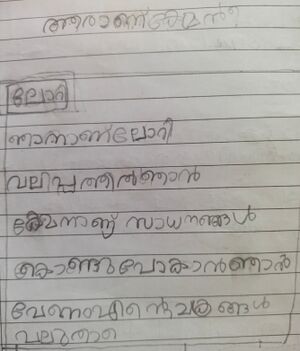 ആരാണ് കേമൻ
ലോറി
ഞാനാണ് ലോറി
വലിപ്പത്തിൽ ഞാൻ
കേമനാണ് സാധനങ്ങൾ
കൊണ്ടു പോകാൻ ഞാൻ
വേണം എൻ്റെ ചക്രങ്ങൾ
വലുതാണ്